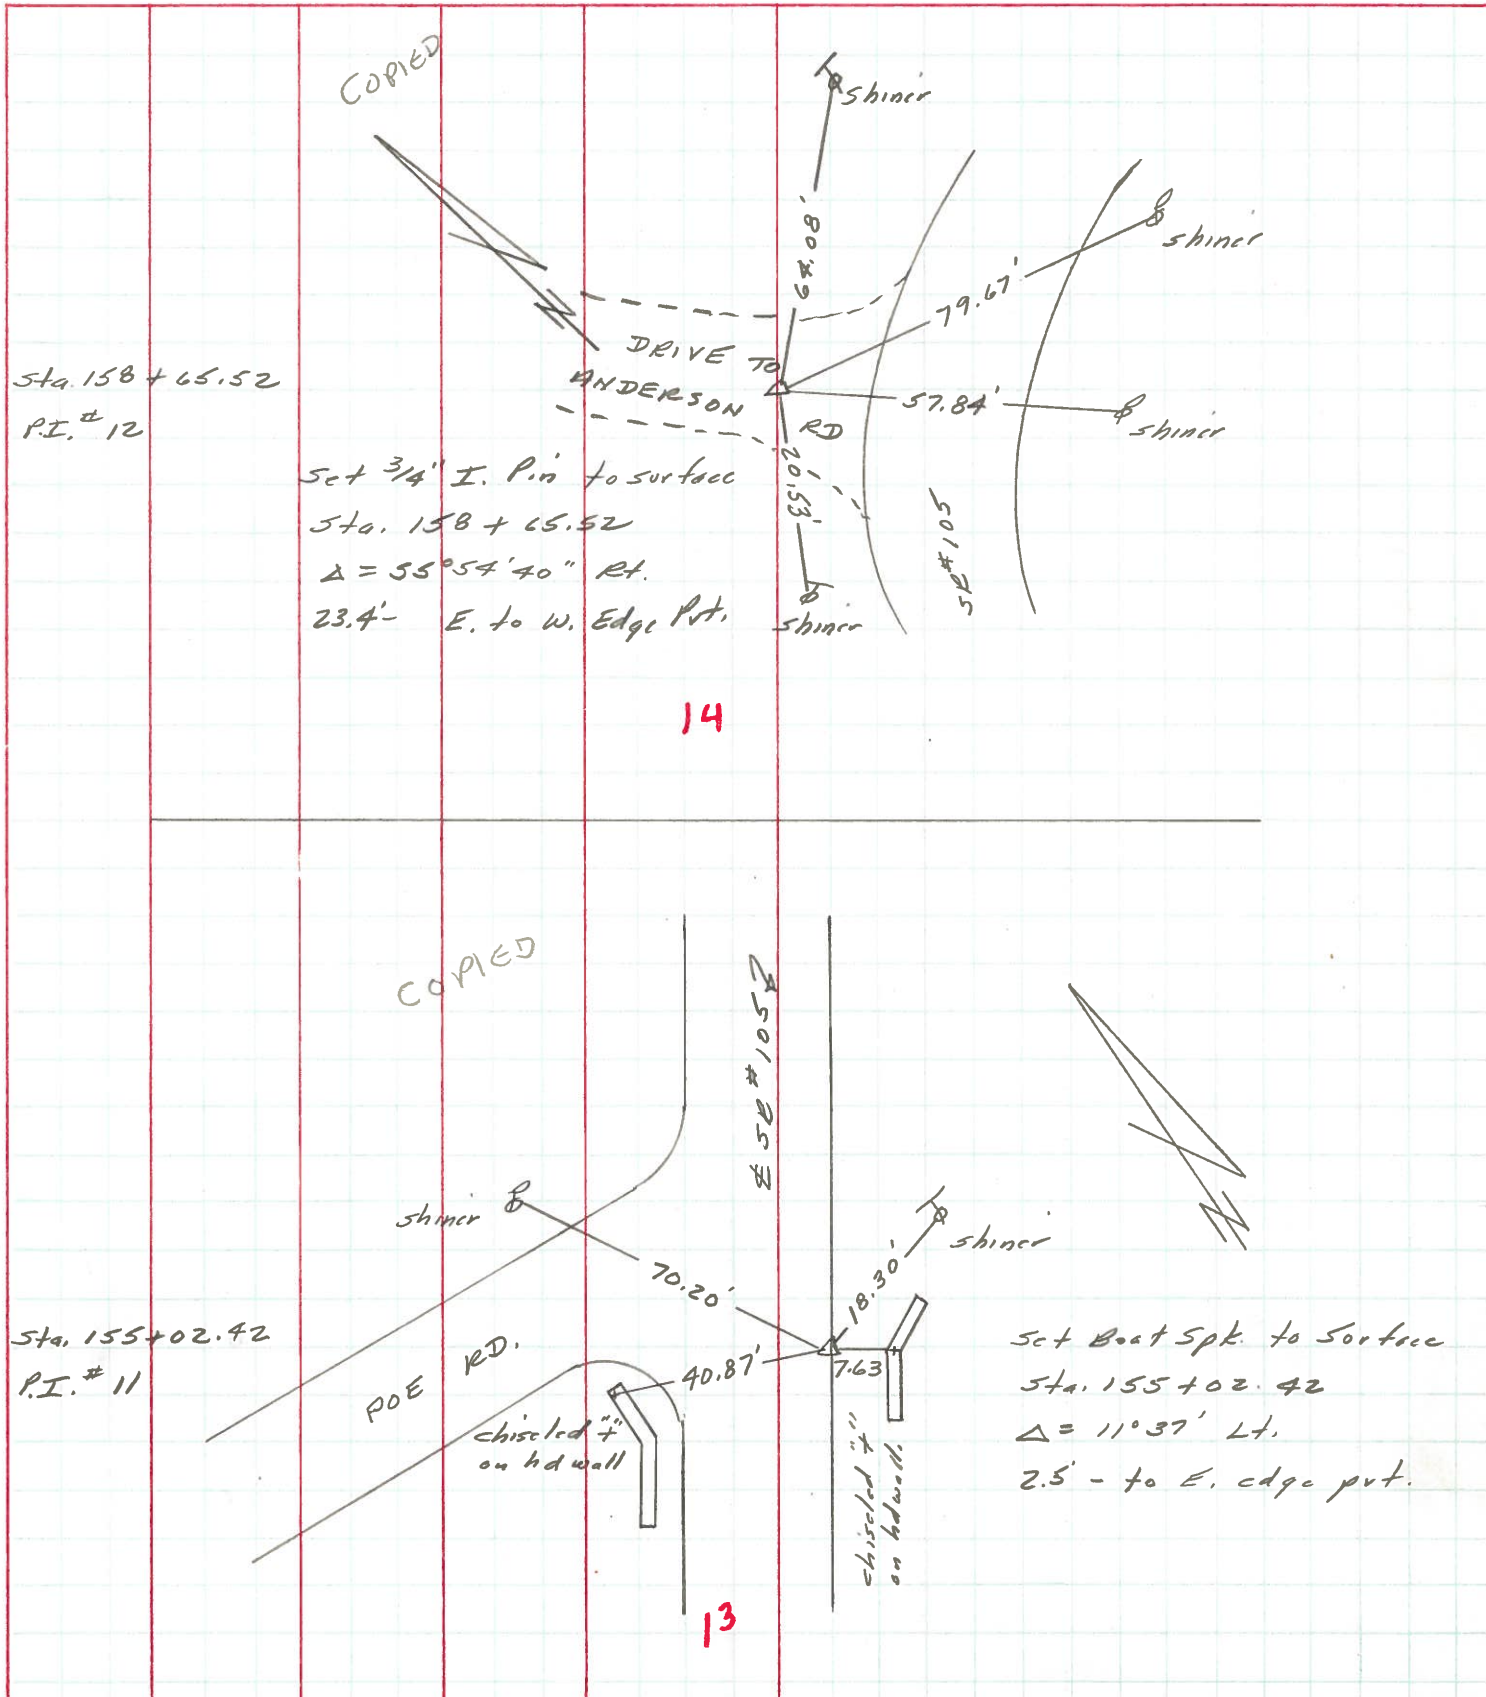 COPIED
shiner
shiner
64.08'
79.67'
DRIVE TO
ANDERSON
RD
57.84'
shiner
Sta. 158 + 65.52
P.I. # 12
20.53'
Set 3/4" I. Pin to surface
Sta. 158 + 65.52
Δ = 55°54'40" Rt.
23.4'- E. to W. Edge Pvt.
shiner
SR #105
14
COPIED
SR #105
shiner
shiner
70.20'
18.30'
Sta. 155+02.42
P.I. # 11
POE RD.
40.87'
7.63
chiseled "+"
on hdwall
chiseled "+"
on hdwall.
Set Boat Spk. to Surface
Sta. 155 + 02.42
Δ = 11°37' Lt.
2.5' - to E. edge pvt.
13